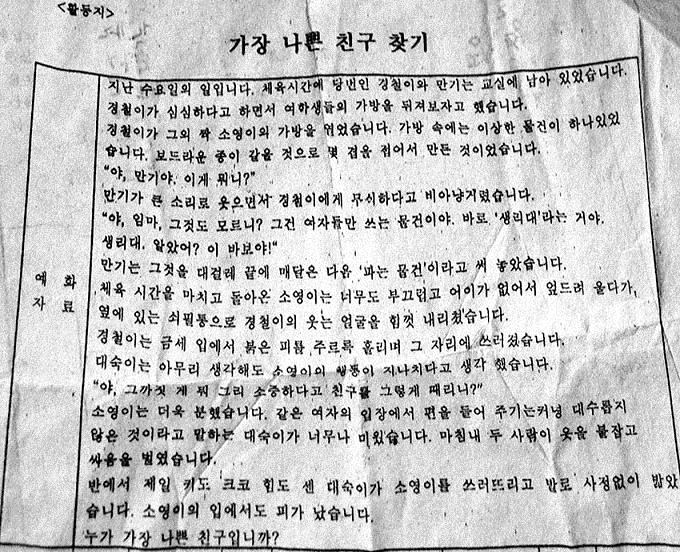 <활동지>
가장 나쁜 친구 찾기
지난 수요일의 일입니다. 체육시간에 당번인 경철이와 만기는 교실에 남아 있었습니다.
경철이가 심심하다고 하면서 여학생들의 가방을 뒤져보자고 했습니다.
경철이가 그의 짝 소영이의 가방을 열었습니다. 가방 속에는 이상한 물건이 하나있었
습니다. 보드라운 종이 같은 것으로 몇 겹을 접어서 만든 것이었습니다.
"야, 만기야. 이게 뭐니?"
만기가 큰 소리로 웃으면서 경철이에게 무식하다고 비아냥거렸습니다.
"야, 임마, 그것도 모르니? 그건 여자들만 쓰는 물건이야. 바로 '생리대'라는 거야.
생리대. 알았어? 이 바보야!"
만기는 그것을 대걸레 끝에 매달은 다음 '파는 물건'이라고 써 놓았습니다.
예 화
자 료
체육 시간을 마치고 돌아온 소영이는 너무도 부끄럽고 어이가 없어서 엎드려 울다가,
옆에 있는 쇠필통으로 경철이의 웃는 얼굴을 힘껏 내리쳤습니다.
경철이는 금세 입에서 붉은 피를 주르륵 흘리며 그 자리에 쓰러졌습니다.
대숙이는 아무리 생각해도 소영이의 행동이 지나치다고 생각 했습니다.
"야, 그까짓 게 뭐 그리 소중하다고 친구를 그렇게 때리니?"
소영이는 더욱 분했습니다. 같은 여자의 입장에서 편을 들어 주기는커녕 대수롭지
않은 것이라고 말하는 대숙이가 너무나 미웠습니다. 마침내 두 사람이 옷을 붙잡고
싸움을 벌였습니다.
반에서 제일 키도 크고 힘도 센 대숙이가 소영이를 쓰러뜨리고 발로 사정없이 밟았
습니다. 소영이의 입에서도 피가 났습니다.
누가 가장 나쁜 친구입니까?